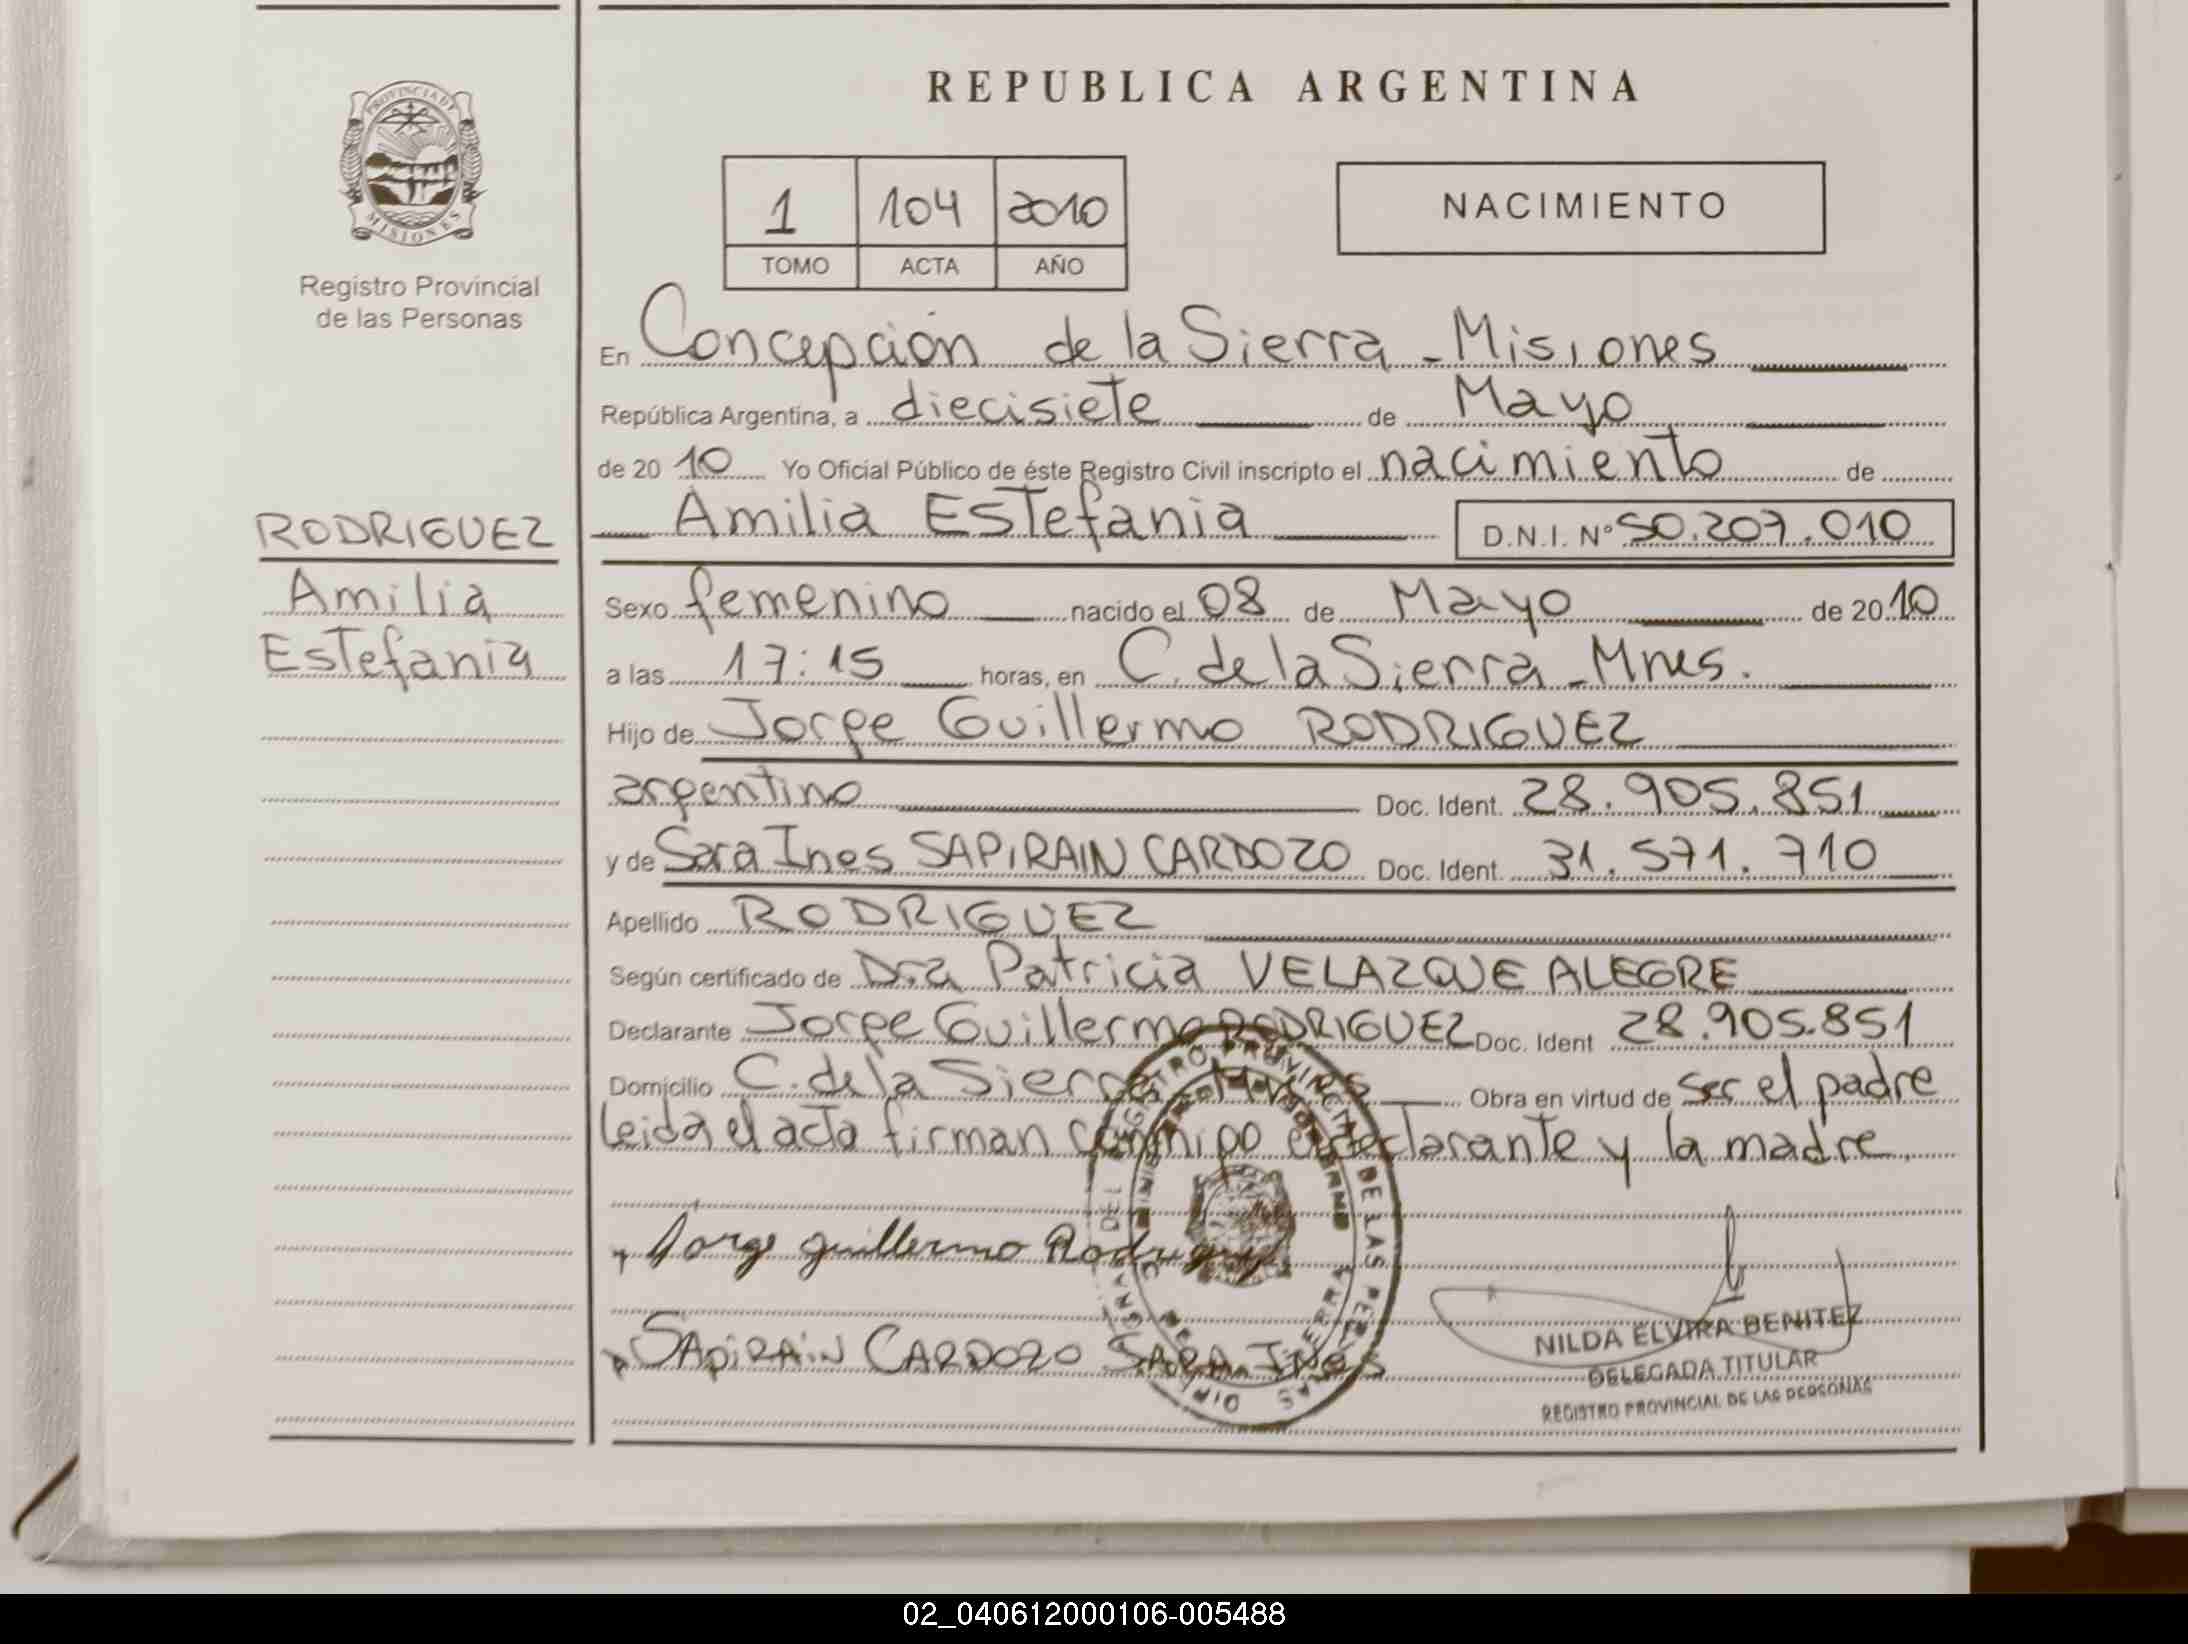 REPUBLICA ARGENTINA
PROVINCIA DE
MISIONES
Registro Provincial
de las Personas
1 104 2010
TOMO ACTA AÑO
NACIMIENTO
En Concepción de la Sierra - Misiones
República Argentina, a diecisiete de Mayo
de 20 10 Yo Oficial Público de éste Registro Civil inscripto el nacimiento de
Amilia Estefania D.N.I. Nº 50.207.010
RODRIGUEZ
Amilia
Estefania
Sexo femenino nacido el 08 de Mayo de 20 10
a las 17:15 horas, en C. de la Sierra - Mnes.
Hijo de Jorge Guillermo RODRIGUEZ
argentino Doc. Ident. 28.905.851
y de Sara Ines SAPIRAIN CARDOZO Doc. Ident. 31.571.710
Apellido RODRIGUEZ
Según certificado de Dra Patricia VELAZQUE ALEGRE
Declarante Jorge Guillermo RODRIGUEZ Doc. Ident 28.905.851
Domicilio C. de la Sierra - Mnes Obra en virtud de ser el padre
leida el acta firman conmigo el declarante y la madre.
Jorge guillermo Rodriguez
SAPiRAiN CARDOZO SARA INES
NILDA ELVIRA BENITEZ
DELEGADA TITULAR
REGISTRO PROVINCIAL DE LAS PERSONAS
02_040612000106-005488